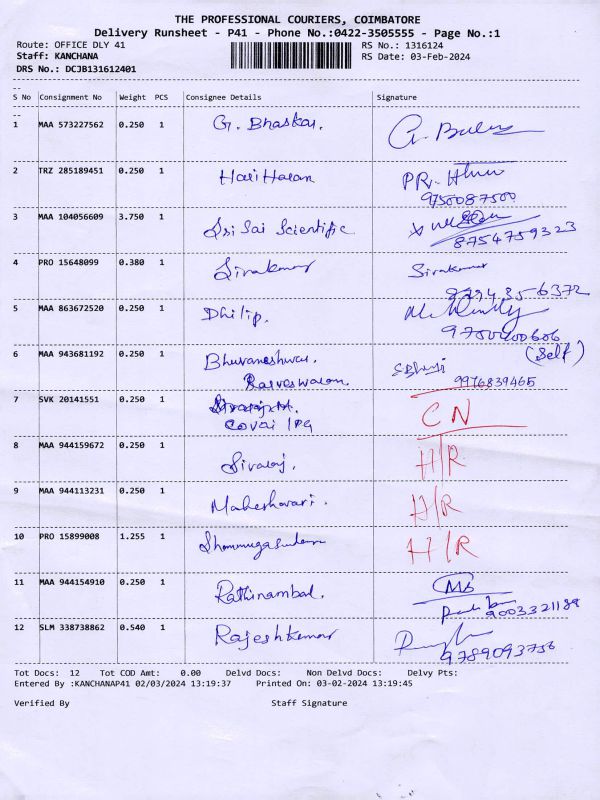 THE PROFESSIONAL COURIERS, COIMBATORE
Delivery Runsheet - P41 - Phone No.:0422-3505555 - Page No.:1
Route: OFFICE DLY 41 RS No.: 1316124
Staff: KANCHANA RS Date: 03-Feb-2024
DRS No.: DCJB131612401
S No Consignment No Weight PCS Consignee Details Signature
1 MAA 573227562 0.250 1 G. Bhaskar.
2 TRZ 285189451 0.250 1 Hari Haran PR.
9750087500
3 MAA 104056609 3.750 1 Sri Sai Scientific
8754759323
4 PRO 15648099 0.380 1 Sivakumar Sivakumar
5 MAA 863672520 0.250 1 Dhilip.
(Self)
6 MAA 943681192 0.250 1 Bhuvaneshwar.
9976839465
7 SVK 20141551 0.250 1 CN
Covai
8 MAA 944159672 0.250 1 Sivaraj. H/R
9 MAA 944113231 0.250 1 Maheshwari. H/R
10 PRO 15899008 1.255 1 H/R
11 MAA 944154910 0.250 1 Rathinambal.
9003321189
12 SLM 338738862 0.540 1 Rajeshkumar
9789093756
Tot Docs: 12 Tot COD Amt: 0.00 Delvd Docs: Non Delvd Docs: Delvy Pts:
Entered By :KANCHANAP41 02/03/2024 13:19:37 Printed On: 03-02-2024 13:19:45
Verified By Staff Signature